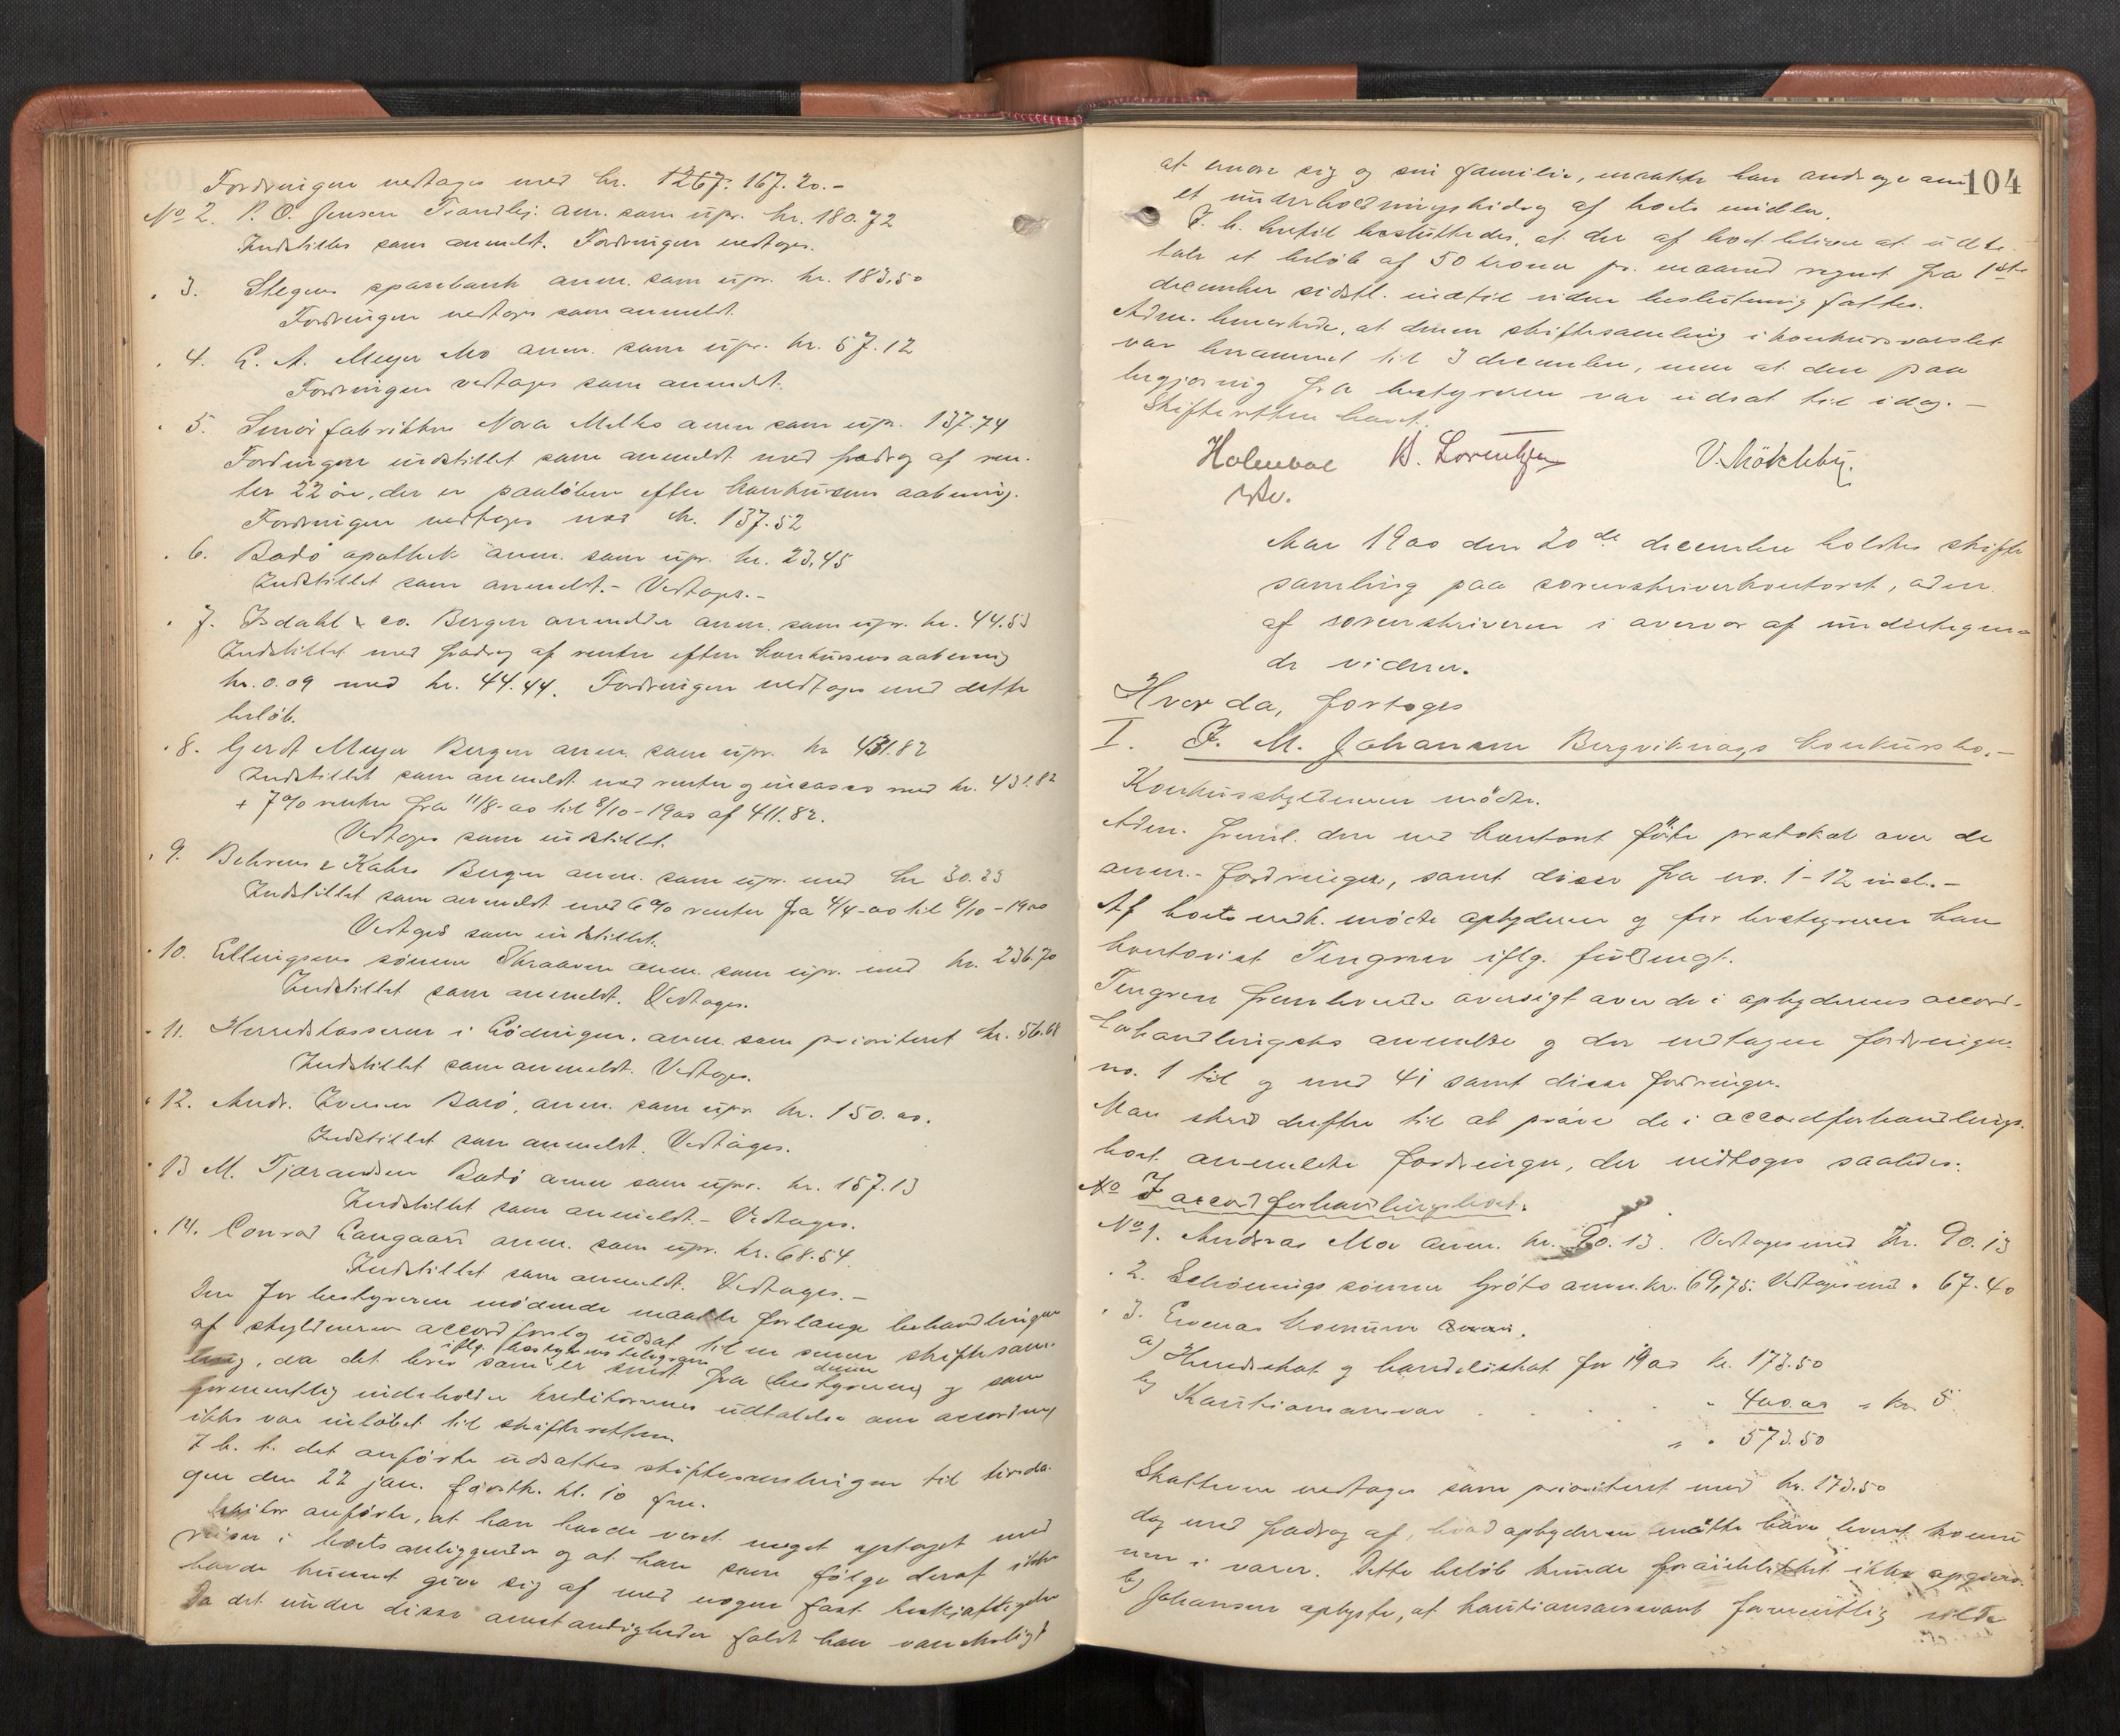 Fordringen vedtages med kr. 1267. 167.20.-
No 2. P. O. Jensen Trandhj. anm. som upr. kr. 180.72
Indstilles som anmeldt. Fordringen vedtages.
" 3. Stegens sparebank anm. som upr. kr. 183.50
Fordringen vedtages som anmeldt
" 4. C. A. Meyer Mo anm. som upr. kr. 57.12
Fordringen vedtages som anmeldt.
" 5. Smörfabrikken Nora Melbo anm som upr. 137.74
Fordringen indstillet som anmeldt med fradrag af ren-
ter 22 öre, der er paaløbne efter konkursens aabning.
Fordringen vedtages med kr. 137.52
" 6. Bodö apothek anm. som upr. kr. 23.45
Indstillet som anmeldt.- Vedtages.-
" 7. Isdahl & co. Bergen anmelder anm. som upr. kr. 44.53
Indstillet med fradrag af renter efter konkursens aabning
kr. 0.09 med kr. 44.44. Fordringen vedtages med dette
beløb.
" 8. Gerdt Meyer Bergen anm. som upr. kr 431.82
Indstillet som anmeldt med renter og incasso med kr. 431.82
+ 7% renter fra 11/8-00 til 8/10-1900 af 411.82.
Vedtages som indstillet.
" 9. Behrens & Kahrs Bergen anm. som upr. med kr 30.23
Indstillet som anmeldt med 6% renter fra 4/4-00 til 8/10-1900
Vedtages som indstillet.
" 10. Ellingsens sönner Skraaven anm. som upr. med kr. 236.70
Indstillet som anmeldt. Vedtages.
" 11. Herredskasseren i Lödingen, anm. som prioriteret kr. 56.68
Indstillet som anmeldt. Vedtages.
" 12. Andr. Iversen Bodö, anm. som upr kr. 150.00.
Indstillet som anmeldt. Vedtages.
" 13 M. Tjærandsen Bodö anm som upr. kr. 157.13
Indstillet som anmeldt.- Vedtages.
" 14. Conrad Langaard anm. som upr. kr. 68.54.
Indstillet som anmeldt. Vedtages.-
Den for bestyreren mødende maatte forlange behandlingen
af skyldneren accordforslag udsat til en senere skiftesam-
iflg. bestyrerens telegram denne
ling, da det brev som er sendt fra bestyreren og som
formentlig indeholder kreditorernes udtalelse om accorden
ikke var indløbet til skifteretten.
I h. t. det anførte udsattes skiftesamlingen til tirsda-
gen den 22 jan. førstk. kl. 10 fm.
anførte, at han havde været meget optaget med
reiser i boets anliggender og at han som følge deraf ikke
havde kunnet give sig af med nogen fast beskjæftigelse
Da det under disse omstændigheder faldt ham vanskeligt
104
at ernære sig og sin familie, maatte han andrage om
et underholdningsbidrag af boets midler.
I h. hertil besluttedes, at der af boet bliver at udbe-
tale et beløb af 50 kroner pr. maaned regnet fra 1ste
december sidstl. indtil videre beslutning fattes.
Adm. bemerkede, at denne skiftesamling i konkursvarslet
var berammet til 3 december, men at den paa
begjæring fra bestyreren var udsat til idag.-
Skifteretten hævet.
Holmboe B. Lorentzen V. Mökleby.
Aar 1900 den 20de december holdtes skifte
samling paa sorenskriverkontoret, adm.
af sorenskriveren i overvær af undertegne-
de vidner.
Hvor da, fortoges
I. J. M. Johansen Bergviknæs konkursbo.-
Konkursskyldneren mödte.
Adm. freml. den ved kontoret förte protokol over de
anm.- fordringer, samt disse fra no. 1-12 incl.-
Af boets vedk. mödte opbyderen og for bestyreren hans
kontorist Tengren iflg. fuldmagt.
Tengren fremlevede oversigt over de i opbyderens accord-
forhandlingsbo anmeldte og der vedtagne fordringer
no. 1 til og med 41 samt disse fordringer.
Man skred derefter til at prøve de i accordforhandlings-
boet anmeldte fordringer, der vedtoges saaledes:
No I accordforhandlingsboet.
No 1. Andreas Moe anm. kr. 90.13. Vedtages med kr. 90.13
" 2. Schönnings sönner Gröto anm. kr. 69,75. Vedtages med " 67.40
" 3. Evenæs kommune
a) Herredsskat og handelsskat for 1900 kr. 173.50
b) Kautionsansvar . . . " 400.00 = kr. 5
" " 573.50
Skatterne vedtages som prioriteret med kr. 173.50
dog med fradrag af, hvad opbyderen maatte have leveret kommu
nen i varer. Dette beløb kunde foreløbigt ikke opgives.
b) Johansen oplyste, at kautionsansvaret formentlig vilde